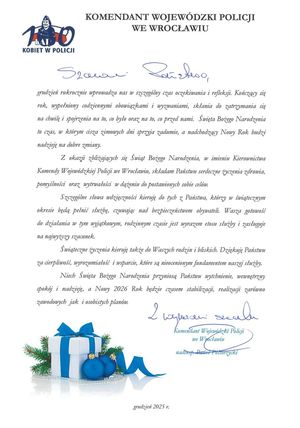 KOMENDANT WOJEWÓDZKI POLICJI
WE WROCŁAWIU
100
KOBIET W POLICJI
Szanowni Państwo,
grudzień rokrocznie wprowadza nas w szczególny czas oczekiwania i refleksji. Kończący się
rok, wypełniony codziennymi obowiązkami i wyzwaniami, skłania do zatrzymania się
na chwilę i spojrzenia na to, co było oraz na to, co przed nami. Święta Bożego Narodzenia
to czas, w którym cisza zimowych dni sprzyja zadumie, a nadchodzący Nowy Rok budzi
nadzieję na dobre zmiany.
Z okazji zbliżających się Świąt Bożego Narodzenia, w imieniu Kierownictwa
Komendy Wojewódzkiej Policji we Wrocławiu, składam Państwu serdeczne życzenia zdrowia,
pomyślności oraz wytrwałości w dążeniu do postawionych sobie celów.
Szczególne słowa wdzięczności kieruję do tych z Państwa, którzy w świątecznym
okresie będą pełnić służbę, czuwając nad bezpieczeństwem obywateli. Wasza gotowość
do działania w tym wyjątkowym, rodzinnym czasie jest wyrazem etosu służby i zasługuje
na najwyższy szacunek.
Świąteczne życzenia kieruję także do Waszych rodzin i bliskich. Dziękuję Państwu
za cierpliwość, wyrozumiałość i wsparcie, które są nieocenionym fundamentem naszej służby.
Niech Święta Bożego Narodzenia przyniosą Państwu wytchnienie, wewnętrzny
spokój i nadzieję, a Nowy 2026 Rok będzie czasem stabilizacji, realizacji zarówno
zawodowych jak i osobistych planów.
Z wyrazami szacunku
Komendant Wojewódzki Policji
we Wrocławiu
nadinsp.
grudzień 2025 r.